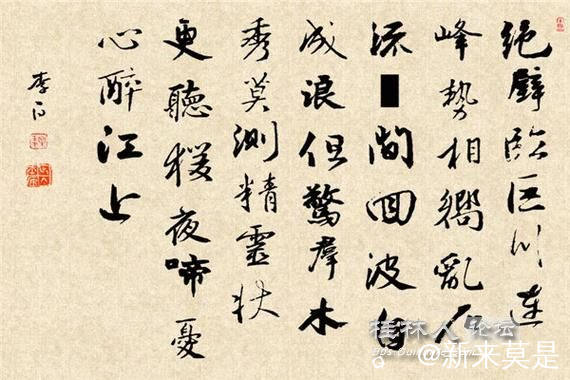 絕壁臨巨川連
峰勢相嚮亂石
流間回波自
成浪但驚羣木
秀莫測精靈狀
更聽猨夜啼憂
心醉江上
桂林人论坛
@新来莫是